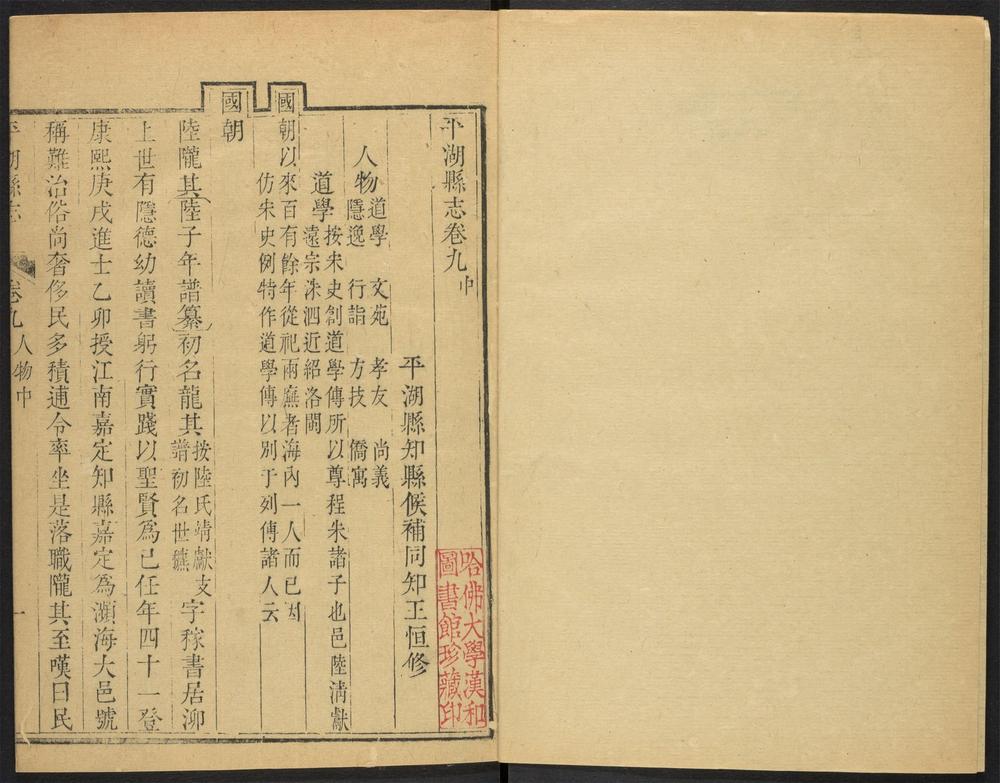 平湖縣志卷九中
平湖縣知縣候補同知王恒修
人物
道學 文苑 孝友 尚義
隱逸 行詣 方技 僑寓
道學
按宋史創道學傳所以尊程朱諸子也邑陸清獻
遠宗洙泗近紹洛閩
國朝以來百有餘年從祀兩廡者海內一人而已因
仿宋史例特作道學傳以別于列傳諸人云
國朝
陸隴其(陸子年譜纂)初名龍其
按陸氏靖獻支
譜初名世穮
字稼書居泖
上世有隱德幼讀書躬行實踐以聖賢爲己任年四十一登
康熙庚戌進士乙卯授江南嘉定知縣嘉定爲瀕海大邑號
稱難治俗尚奢侈民多積逋令率坐是落職隴其至嘆曰民
平湖縣志 卷九人物中 一
哈佛大學漢和
圖書館珍藏印